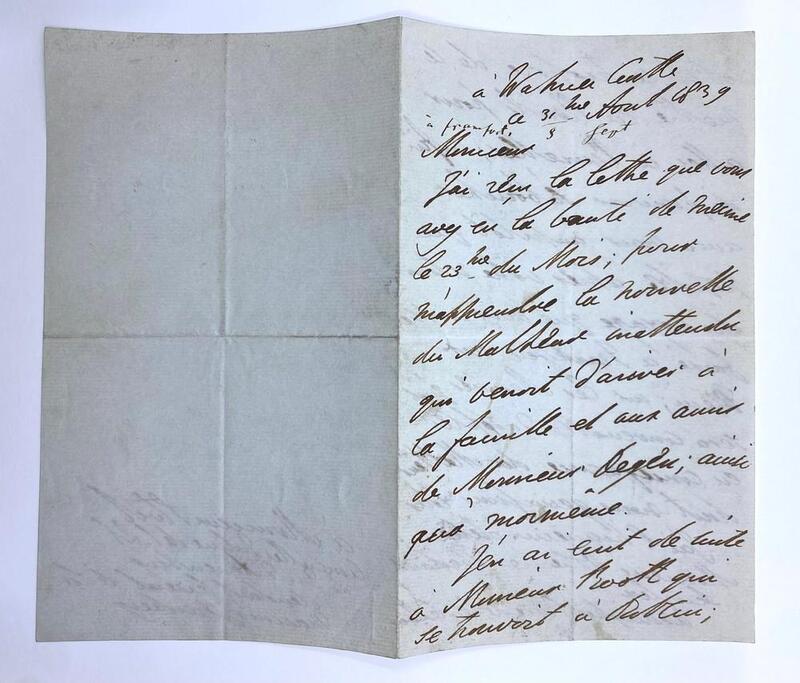 à Castle
ce 31 me Août 1839
à francfort. 3 Sept
Monsieur
J'ai reçu la lettre que vous
avez eû la bonté de
le 23 me du Mois; pour
m'apprendre la nouvelle
du Malheur inattendu
qui venoit d'arriver à
la famille et aux amis
de Monsieur Degên; ainsi
qu'à moimême.
J'en ai ecrit de suite
à Monsieur qui
se trouvoit à Dublin;